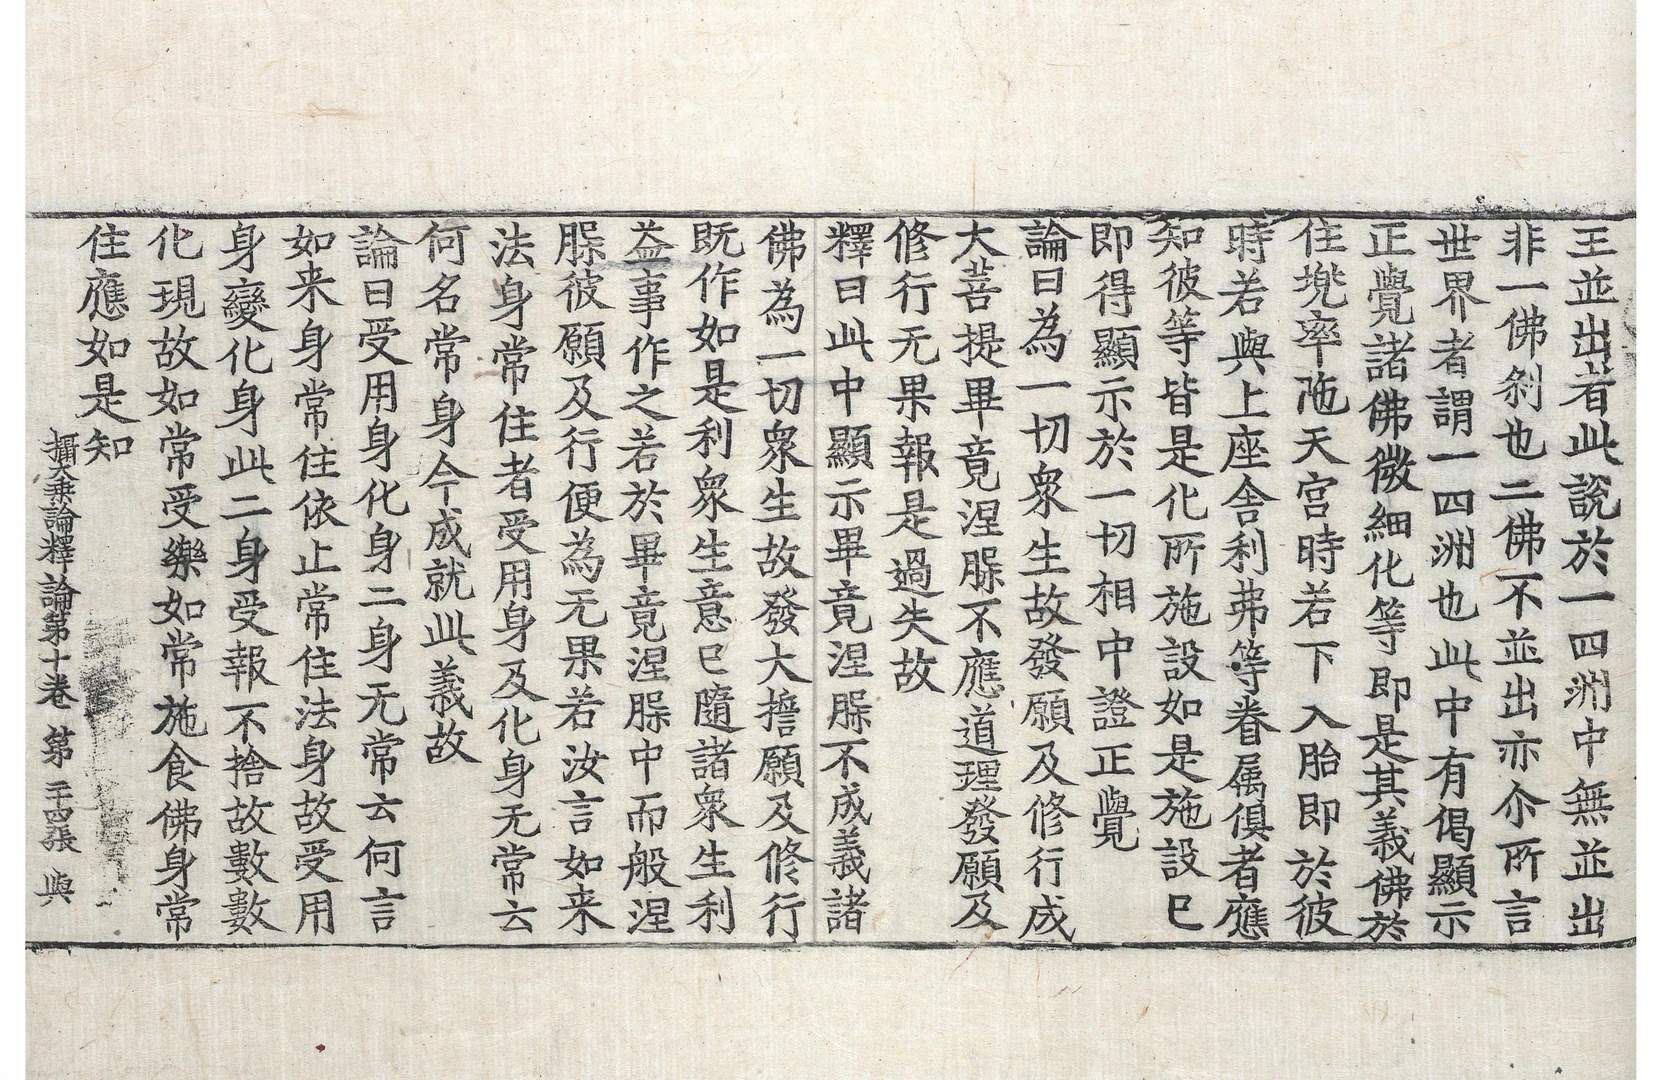 王並出者此說於一四洲中無並出
非一佛刹也二佛不並出亦尒所言
世界者謂一四洲也此中有偈顯示
正覺諸佛微細化等即是其義佛於
住兠率陁天宮時若下入胎即於彼
時若與上座舍利弗等眷属俱者應
知彼等皆是化所施設如是施設已
即得顯示於一切相中證正覺
論曰為一切衆生故發願及修行成
大菩提畢竟涅槃不應道理發願及
修行无果報是過失故
釋曰此中顯示畢竟涅槃不成義諸
佛為一切衆生故發大擔願及修行
既作如是利衆生意已隨諸衆生利
益事作之若於畢竟涅槃中而般涅
槃彼願及行便為无果若汝言如来
法身常住者受用身及化身无常云
何名常身今成就此義故
論曰受用身化身二身无常云何言
如来身常住依止常住法身故受用
身變化身此二身受報不捨故數數
化現故如常受樂如常施食佛身常
住應如是知
攝大乗論釋論第十卷 第二十四張 與